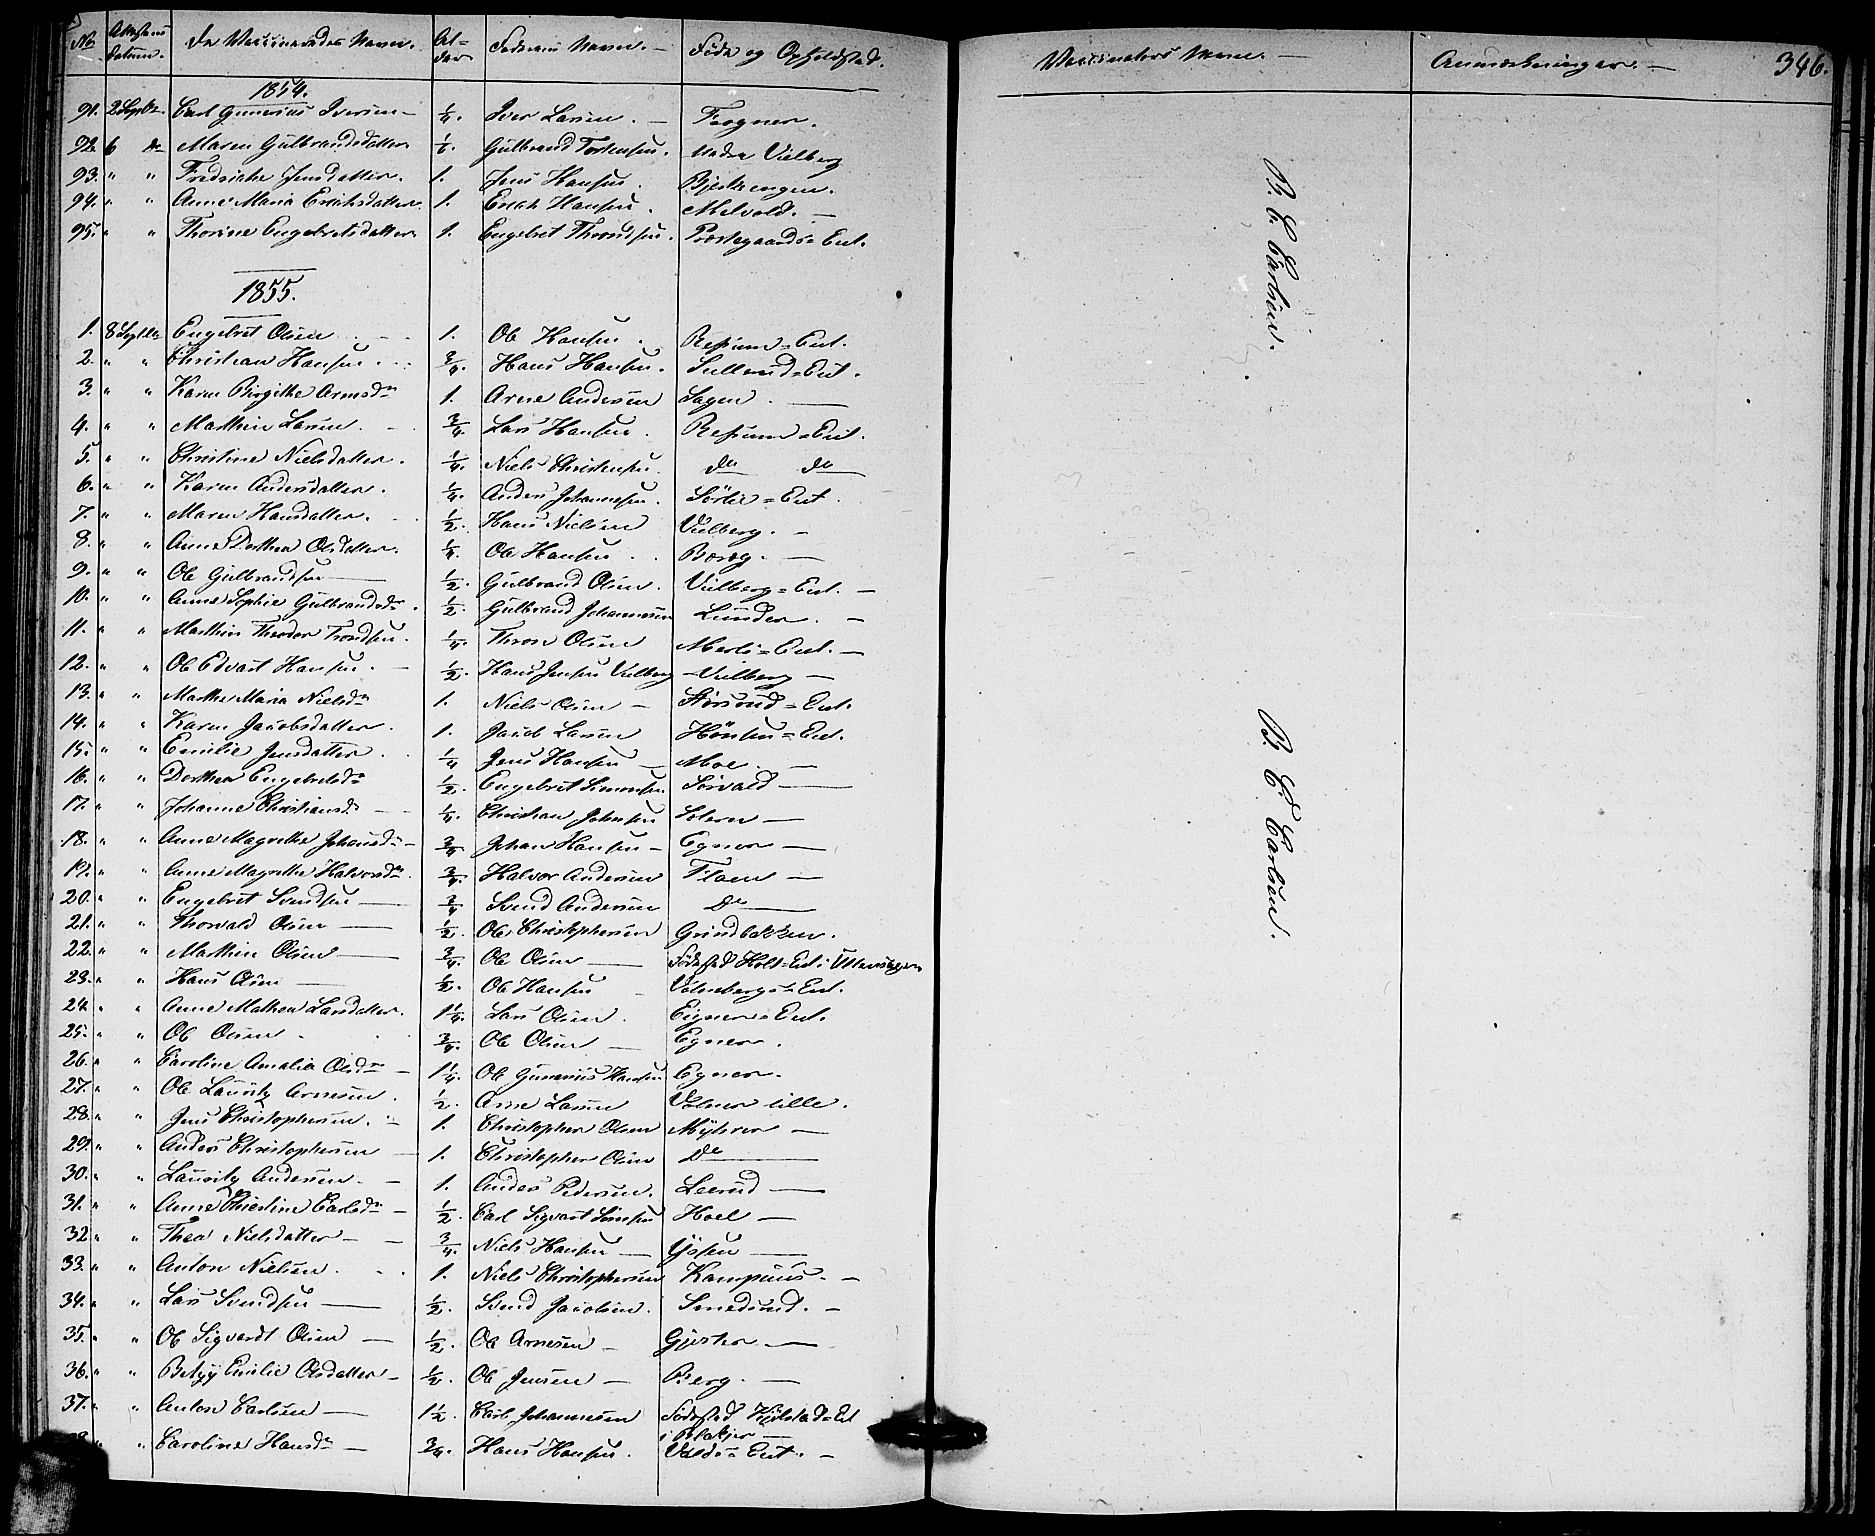 No Attestens Datum. De Vaccineredes Navne. Al-der Faderens Navn. — Føde og Opholdsted. Vaccinators Navn. — Anmærkninger. — 346.
1854.
91. 2 Septbr. Carl Gunerius Iversen — 1/4. Iver Larsen. — Frogner.
92. 6 do Maren Gulbrandsdatter Gulbrand Torstensen. nedre Vilberg
93. " " Fredrikke Jensdatter. 1. Jens Hansen. Bjerkeengen.
94. " " Anne Maria Erichsdatter 1. Erich Hansen. Melvold. —
95. " " Thorine Engebretsdatter. 1. Engebret Throndsen. Prestegaards=Eet.
1855.
1. 8 Septbr Engebret Olsen 1. Ole Hansen. Refsum=Eet.
2. " " Christian Hansen 3/4. Hans Hansen. Sulerud=Eet.
3. " " Karen Birgithe Arnesdr 1. Arne Andersen Sagen. —
4. " " Marthin Larsen. 3/4. Lars Hansen. Refsum=Eet.
5. " " Christine Nielsdatter. 1/4. Niels Christensen. do do
6. " " Karen Andersdatter. 1/4. Anders Johannesen. Sörlie=Eet.
7. " " Maren Hansdatter. 1/2. Hans Nielsen Vilberg. —
8. " " Anne Dorthea Olsdatter. 1/4. Ole Hansen Borög. —
9. " " Ole Gulbrandsen — 1/2. Gulbrand Olsen. Vilberg=Eet. —
10. " " Anne Sophie Gulbrandsdr. 1/2. Gulbrand Johannesen Lunder. —
11. " " Marthin Theodor Trondsen. 1/4. Thron Olsen Merli=Eet. —
12. " " Ole Edvart Hansen. — 1/2. Hans Jensen Vilberg Vilberg —
13. " " Marthe Maria Nielsdr 1. Niels Olsen — =Eet.
14. " " Karen Jacobsdatter. 1. Jacob Larsen Hönsen=Eet.
15. " " Emilie Jensdatter. 1/4 Jens Hansen — Moe. —
16. " " Dorthea Engebretsdr 1/2. Engebret Simonsen Sörvald —
17. " " Johanne Christiansdr — 1/4. Christian Johnsen Solern —
18. " " Anne Magrethe Johansdr — 3/4. Johan Hansen — Egner —
19. " " Anne Magrethe Halvorsdr. 3/4. Halvor Andersen Floen —
20. " " Engebret Svendsen — 3/4 Svend Andersen Do —
21. " " Thorvald Olsen — 1/2. Ole Christophersen Grindbakken.
22. " " Marthin Olsen — 3/4. Ole Olsen — Födested Holt=Eet i Ullensager
23. " " Hans Olsen — 1/2. Ole Hansen — Volnebergs=Eet.
24. " " Anne Mathea Larsdatter. 1 1/4. Lars Olsen. Eigner=Eet.
25. " " Ole Olsen 3/4. Ole Olsen — Egner.
26. " " Caroline Amalia Olsdr — 1 1/4. Ole Gunerius Hansen Egner.
27. " " Ole Lauritz Arnesen. 1/2. Arne Larsen Volner lille.
28. " " Jens Christophersen. — 1. Christopher Olsen Myhrer —
29. " " Anders Christophersen — 1. Christopher Olsen Do —
30. " " Lauritz Andersen. — 1. Anders Pedersen. Leerud —
31. " " Anne Christine Carlsdr — 1/2. Carl Sigvart Hoel —
32. " " Thea Nielsdatter — 3/4. Niels Hansen —
33. " " Anton Nielsen. 1. Niels Christophersen Kampuus. —
34. " " Lars Svendsen — 1/2. Svend Jacobsen. Smedsrud. —
35. " " Ole Sigvardt Olsen — 1/2. Ole Arnesen — Gjester —
36. " " Betzy Emilie Olsdatter — 1/2. Ole Jensen — Berg. —
37. " " Anton Carlsen — 1 1/2. Carl Johannesen Födested Hjelstad=Eet
i Blakjer —
" Caroline Hansdr — 3/4. Hans Hansen. Valds=Eet. —
B. C. Carlsen.
B. C. Carlsen.